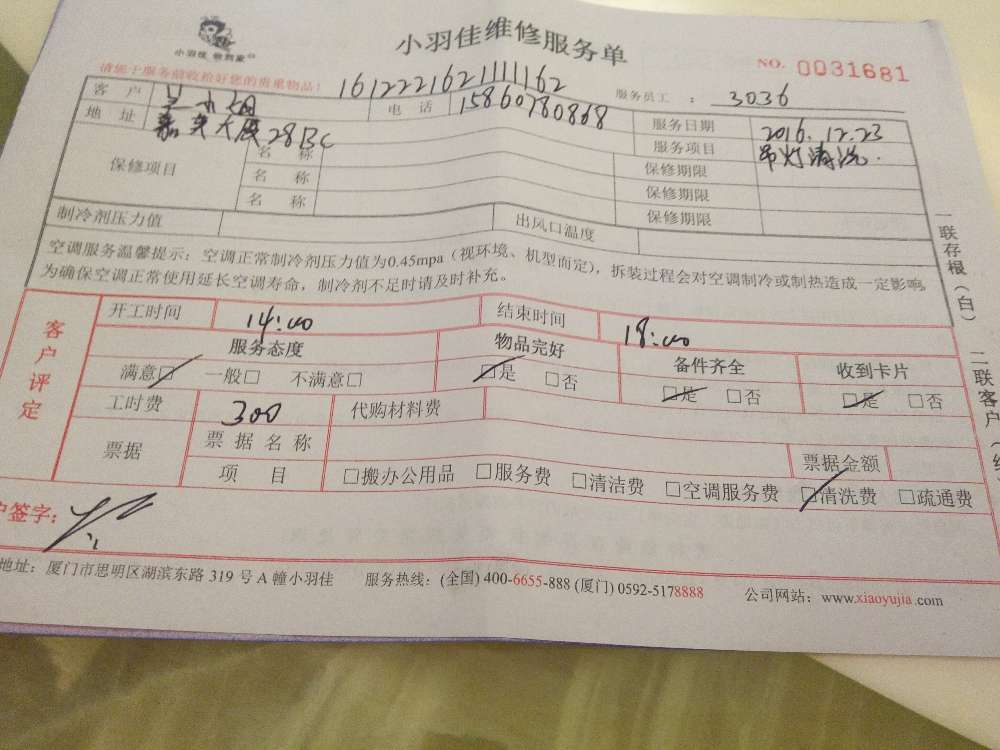 小羽佳维修服务单
NO. 0031681
请您于服务前收拾好您的贵重物品!
1612221621111162
服务员工: 3036
客户 电话 15860780868 服务日期 2016.12.23
地址 大厦28BC 服务项目 吊灯清洗.
保修项目 名称 保修期限
名称 保修期限
名称 保修期限
制冷剂压力值 出风口温度
空调服务温馨提示:空调正常制冷剂压力值为0.45mpa(视环境、机型而定),拆装过程会对空调制冷或制热造成一定影响,
为确保空调正常使用延长空调寿命,制冷剂不足时请及时补充。
客户评定
开工时间 14:00 结束时间 18:00
服务态度 物品完好 备件齐全 收到卡片
满意□ 一般□ 不满意□ □是 □否 □是 □否 □是 □否
工时费 300 代购材料费
票据 票据名称 票据金额
项目 □搬办公用品 □服务费 □清洁费 □空调服务费 □清洗费 □疏通费
户签字:
地址:厦门市思明区湖滨东路 319 号 A 幢小羽佳 服务热线:(全国) 400-6655-888 (厦门) 0592-5178888 公司网站:www.xiaoyujia.com
一联存根(白)
二联客户(